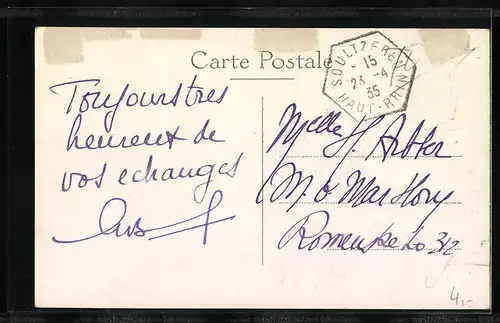 Carte Postale
SOULTZEREN
15
23 -4
35
HAUT-RHIN
Toujours tres
heureux de
vos echanges
Melle H. Arbter
M. o Mar
Lo 312
4,00